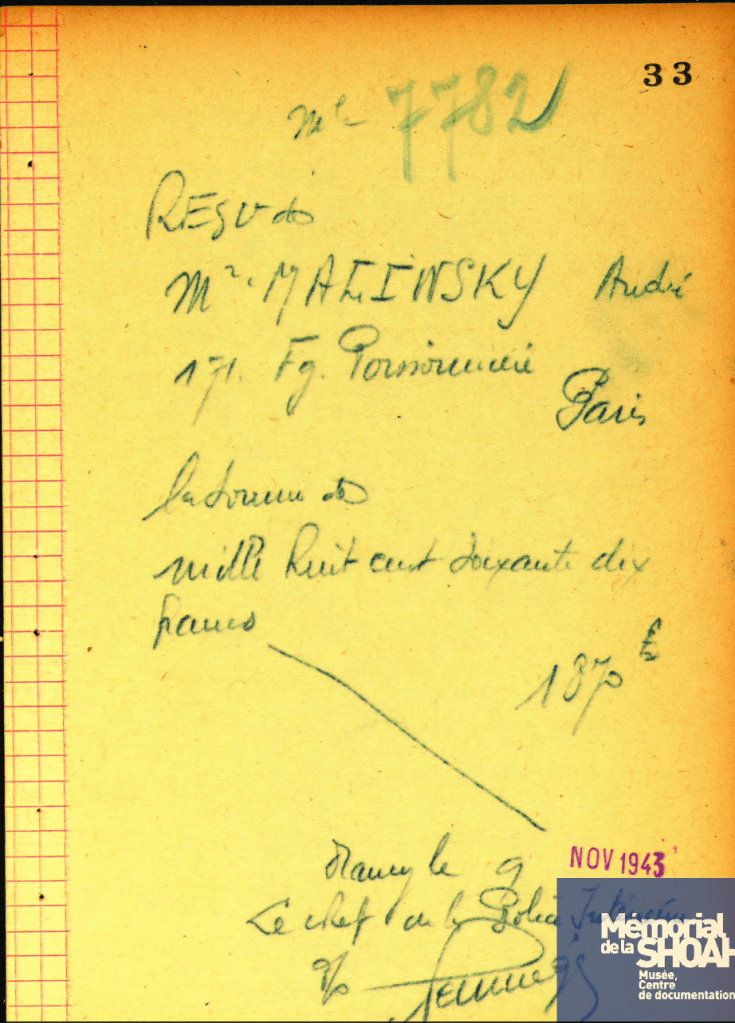 33
Mle 7782
RESU de
Mr. MALINSKY André
171. Fg. Poissonnière
Paris
la somme de
mille huit cent soixante dix
francs
1870 F
Drancy le 9 NOV 1943
Le chef de la Police Intérieure
P/o
Memorial
de la SHOAH
Musée,
Centre
de documentation